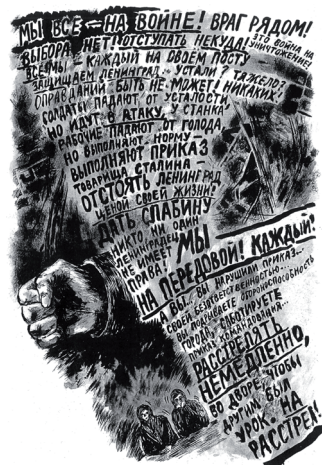 МЫ ВСЕ – НА ВОЙНЕ! ВРАГ РЯДОМ!
ЭТО ВОЙНА НА
УНИЧТОЖЕНИЕ!
ВЫБОРА НЕТ! ОТСТУПАТЬ НЕКУДА!
ВСЕ МЫ – КАЖДЫЙ НА СВОЕМ ПОСТУ
ЗАЩИЩАЕМ ЛЕНИНГРАД. УСТАЛИ? ТЯЖЕЛО?
ОПРАВДАНИЙ БЫТЬ НЕ МОЖЕТ! НИКАКИХ!
СОЛДАТЫ ПАДАЮТ ОТ УСТАЛОСТИ,
НО ИДУТ В АТАКУ. У СТАНКА
РАБОЧИЕ ПАДАЮТ ОТ ГОЛОДА,
НО ВЫПОЛНЯЮТ НОРМУ –
ВЫПОЛНЯЮТ ПРИКАЗ
ТОВАРИЩА СТАЛИНА –
ОТСТОЯТЬ ЛЕНИНГРАД
ЦЕНОЙ СВОЕЙ ЖИЗНИ!
ДАТЬ СЛАБИНУ
НИКТО, НИ ОДИН
ЛЕНИНГРАДЕЦ
НЕ ИМЕЕТ
ПРАВА!
МЫ
НА ПЕРЕДОВОЙ! КАЖДЫЙ!
А ВЫ... ВЫ НАРУШИЛИ ПРИКАЗ...
СВОЕЙ БЕЗОТВЕТСТВЕННОСТЬЮ...
ВЫ ПОДРЫВАЕТЕ ОБОРОНОСПОСОБНОСТЬ
ГОРОДА, САБОТИРУЕТЕ
ПРИКАЗ КОМАНДОВАНИЯ...
РАССТРЕЛЯТЬ
НЕМЕДЛЕННО,
ВО ДВОРЕ, ЧТОБЫ
ДРУГИМ БЫЛ
УРОК. НА
РАССТРЕЛ!